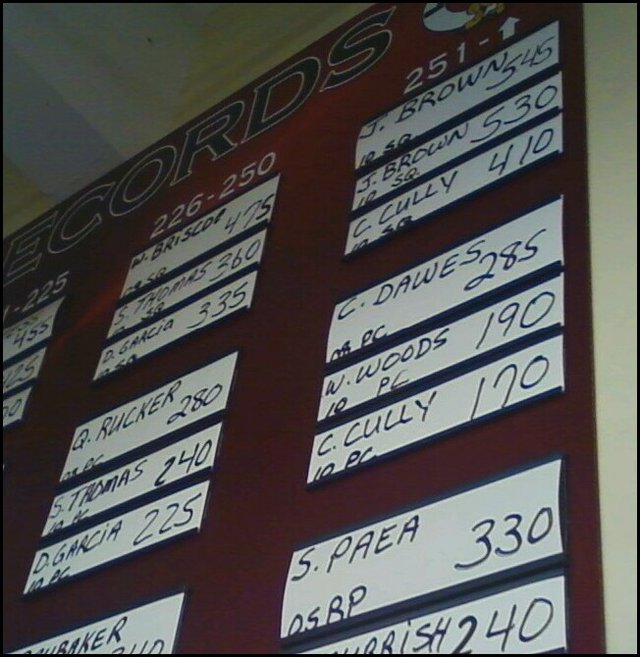 ECORDS
-225
455
226-250
W. BRISCOE 475
S. THOMAS 360
D. GARCIA 335
Q. RUCKER 280
S. THOMAS 240
10 PC
D. GARCIA 225
10 PC
251-↑
J. BROWN 545
10 SQ
J. BROWN 530
10 SQ
C. CULLY 410
10 SQ
C. DAWES 285
PC
W. WOODS 190
10 PC
C. CULLY 170
10 PC
S. PAEA 330
OSBP
240